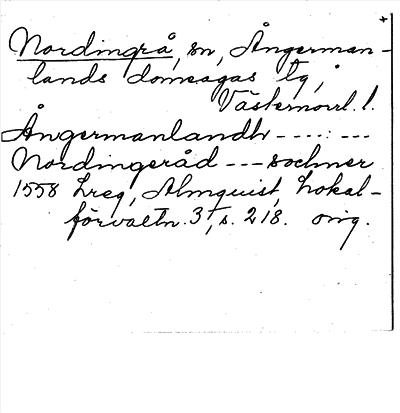 Nordingrå, sn, Ångerman-
lands domsagas tg,
Västernorrl. l.
Ångermanlandh ----:---
Nordingeråd --- sochner
1558 Lreg, Almquist, Lokal-
förvaltn. 3, s. 218. orig.